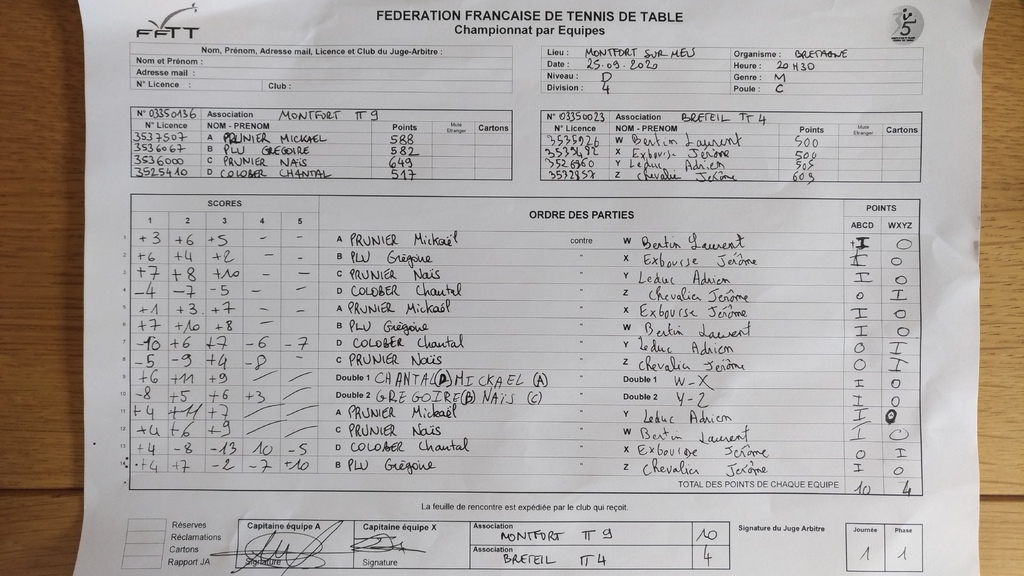 FFTT
FEDERATION FRANCAISE DE TENNIS DE TABLE
Championnat par Equipes
Nom, Prénom, Adresse mail, Licence et Club du Juge-Arbitre :
Nom et Prénom :
Adresse mail :
N° Licence : Club :
Lieu : MONTFORT SUR MEU Organisme : BRETAGNE
Date : 25.09.2020 Heure : 20H30
Niveau : D Genre : M
Division : 4 Poule : C
N° 03350136 Association MONTFORT TT 9
N° Licence NOM - PRENOM Points Muté Etranger Cartons
3537507 A PRUNIER MICKAEL 588
3536067 B PLU GREGOIRE 582
3536000 C PRUNIER NAÏS 649
3525410 D COLOBER CHANTAL 517
N° 03350023 Association BRETEIL TT 4
N° Licence NOM - PRENOM Points Muté Etranger Cartons
W Bertin Laurent 500
X Exbourse Jérôme 500
Y Leduc Adrien 505
Z Chevalie Jérôme 609
SCORES ORDRE DES PARTIES POINTS
1 2 3 4 5 ABCD WXYZ
1 +3 +6 +5 - - A PRUNIER Mickaël contre W Bertin Laurent I 0
2 +6 +4 +2 - - B PLU Grégoire " X Exbourse Jérôme I 0
3 +7 +8 +10 - - C PRUNIER Naïs " Y Leduc Adrien I 0
4 -4 -7 -5 - - D COLOBER Chantal " Z Chevalier Jérôme 0 I
5 +1 +3 +7 - - A PRUNIER Mickaël " X Exbourse Jérôme I 0
6 +7 +10 +8 - - B PLU Grégoire " W Bertin Laurent I 0
7 -10 +6 +7 -6 -7 D COLOBER Chantal " Y Leduc Adrien 0 I
8 -5 -9 +4 -8 - C PRUNIER Naïs " Z Chevalier Jérôme 0 I
9 +6 +11 +9 / / Double 1 CHANTAL(D) MICKAEL (A) Double 1 W-X I 0
10 -8 +5 +6 +3 / Double 2 GREGOIRE(B) NAÏS (C) Double 2 Y-Z I 0
11 +4 +11 +7 / / A PRUNIER Mickaël " Y Leduc Adrien I 0
12 +4 +6 +9 / / C PRUNIER Naïs " W Bertin Laurent I 0
13 +4 -8 -13 10 -5 D COLOBER Chantal " X Exbourse Jérôme 0 I
14 +4 +7 -2 -7 +10 B PLU Grégoire " Z Chevalier Jérôme I 0
TOTAL DES POINTS DE CHAQUE EQUIPE 10 4
La feuille de rencontre est expédiée par le club qui reçoit.
Réserves
Réclamations
Cartons
Rapport JA
Capitaine équipe A
Signature
Capitaine équipe X
Signature
Association
MONTFORT TT 9 10
Association
BRETEIL TT 4 4
Signature du Juge Arbitre
Journée Phase
1 1